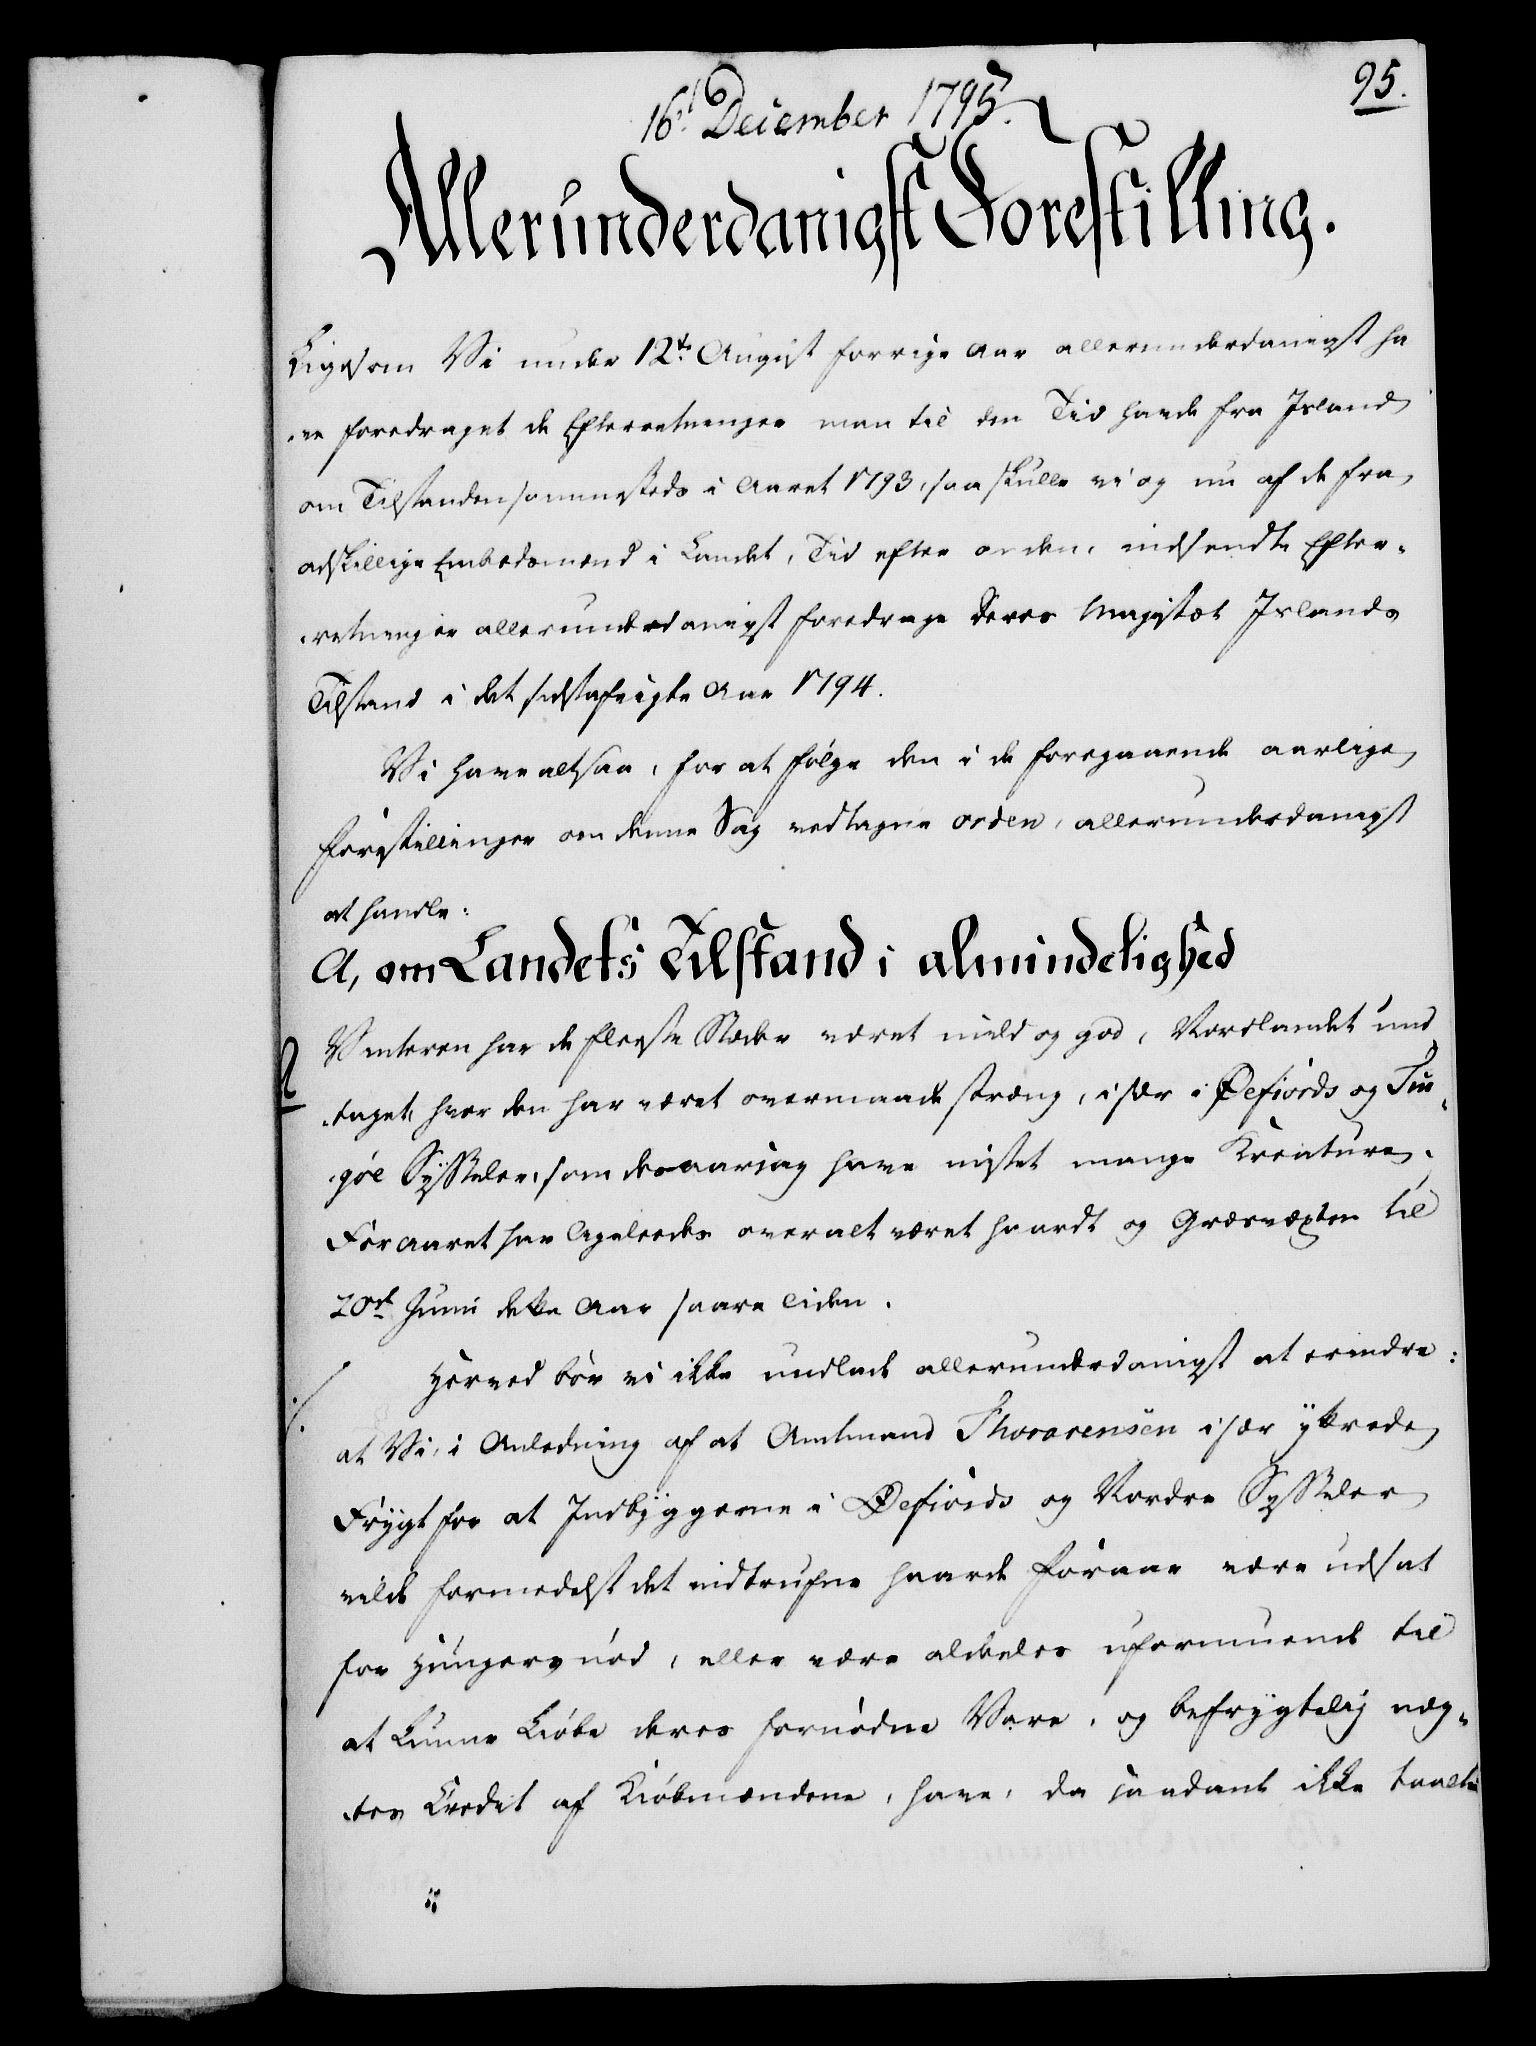 95.
16d December 1795.
Allerunderdanigst Forestilling.
Ligesom Vi under 12te August forrige Aar allerunderdanigst ha
ve foredraget de Efterretninger man til den Tid havde fra Island
om Tilstanden sammesteds i Aaret 1793, saa skulle vi og nu af de fra
adskillige Embedsmænd i Landet, Tid efter anden, indsendte Efter-
retninger allerunderdanigst foredrage Deres Majestæt Islands
Tilstand i det sidstafvigte Aar 1794.
Vi have altsaa, for at følge den i de foregaaende aarlige
Forestillinger om denne Sag vedtagne orden, allerunderdanigst
at handle:
A, om Landets Tilstand i almindelighed
Vinteren har de fleeste Stæder været mild og god, Nordlandet und
taget, hvor den har været overmaade streng, især i Øefiords og Tin-
gøe Sysseler, som desaarsag have mistet mange Kreature.
Foraaret har ligeleedes overalt været haardt og Græsvæxten til
20de Junii dette Aar saare liden.
Herved bør vi ikke undlade allerunderdanigst at erindre:
at Vi, i Anledning af at Amtmand Thorarensen især yttrede
Frygt for at Indbyggerne i Øefiords og Nordre Sysseler
vilde formedelst det indtrufne haarde Foraar være udsat
for Hungersnød, eller være aldeeles uformuende til
at kunne kiøbe deres fornødne Vare, og befrygtelig næg-
tes Credit af Kiøbmændene, have, da saadant ikke taalte